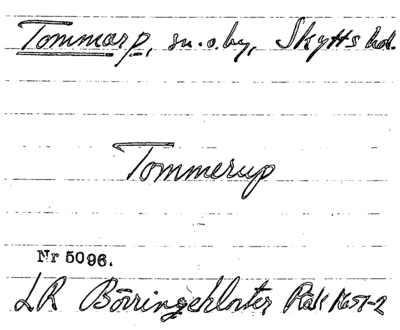 Tommarp, sn. o. by, Skytts hd.
Tommerup
Nr 5096.
LR Börringekloster Räk 1651-2